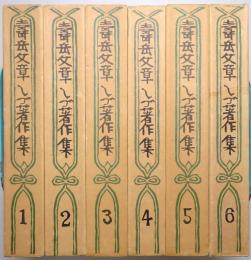 壽岳文章しづ著作集
1
壽岳文章しづ著作集
2
壽岳文章しづ著作集
3
壽岳文章しづ著作集
4
壽岳文章しづ著作集
5
壽岳文章しづ著作集
6